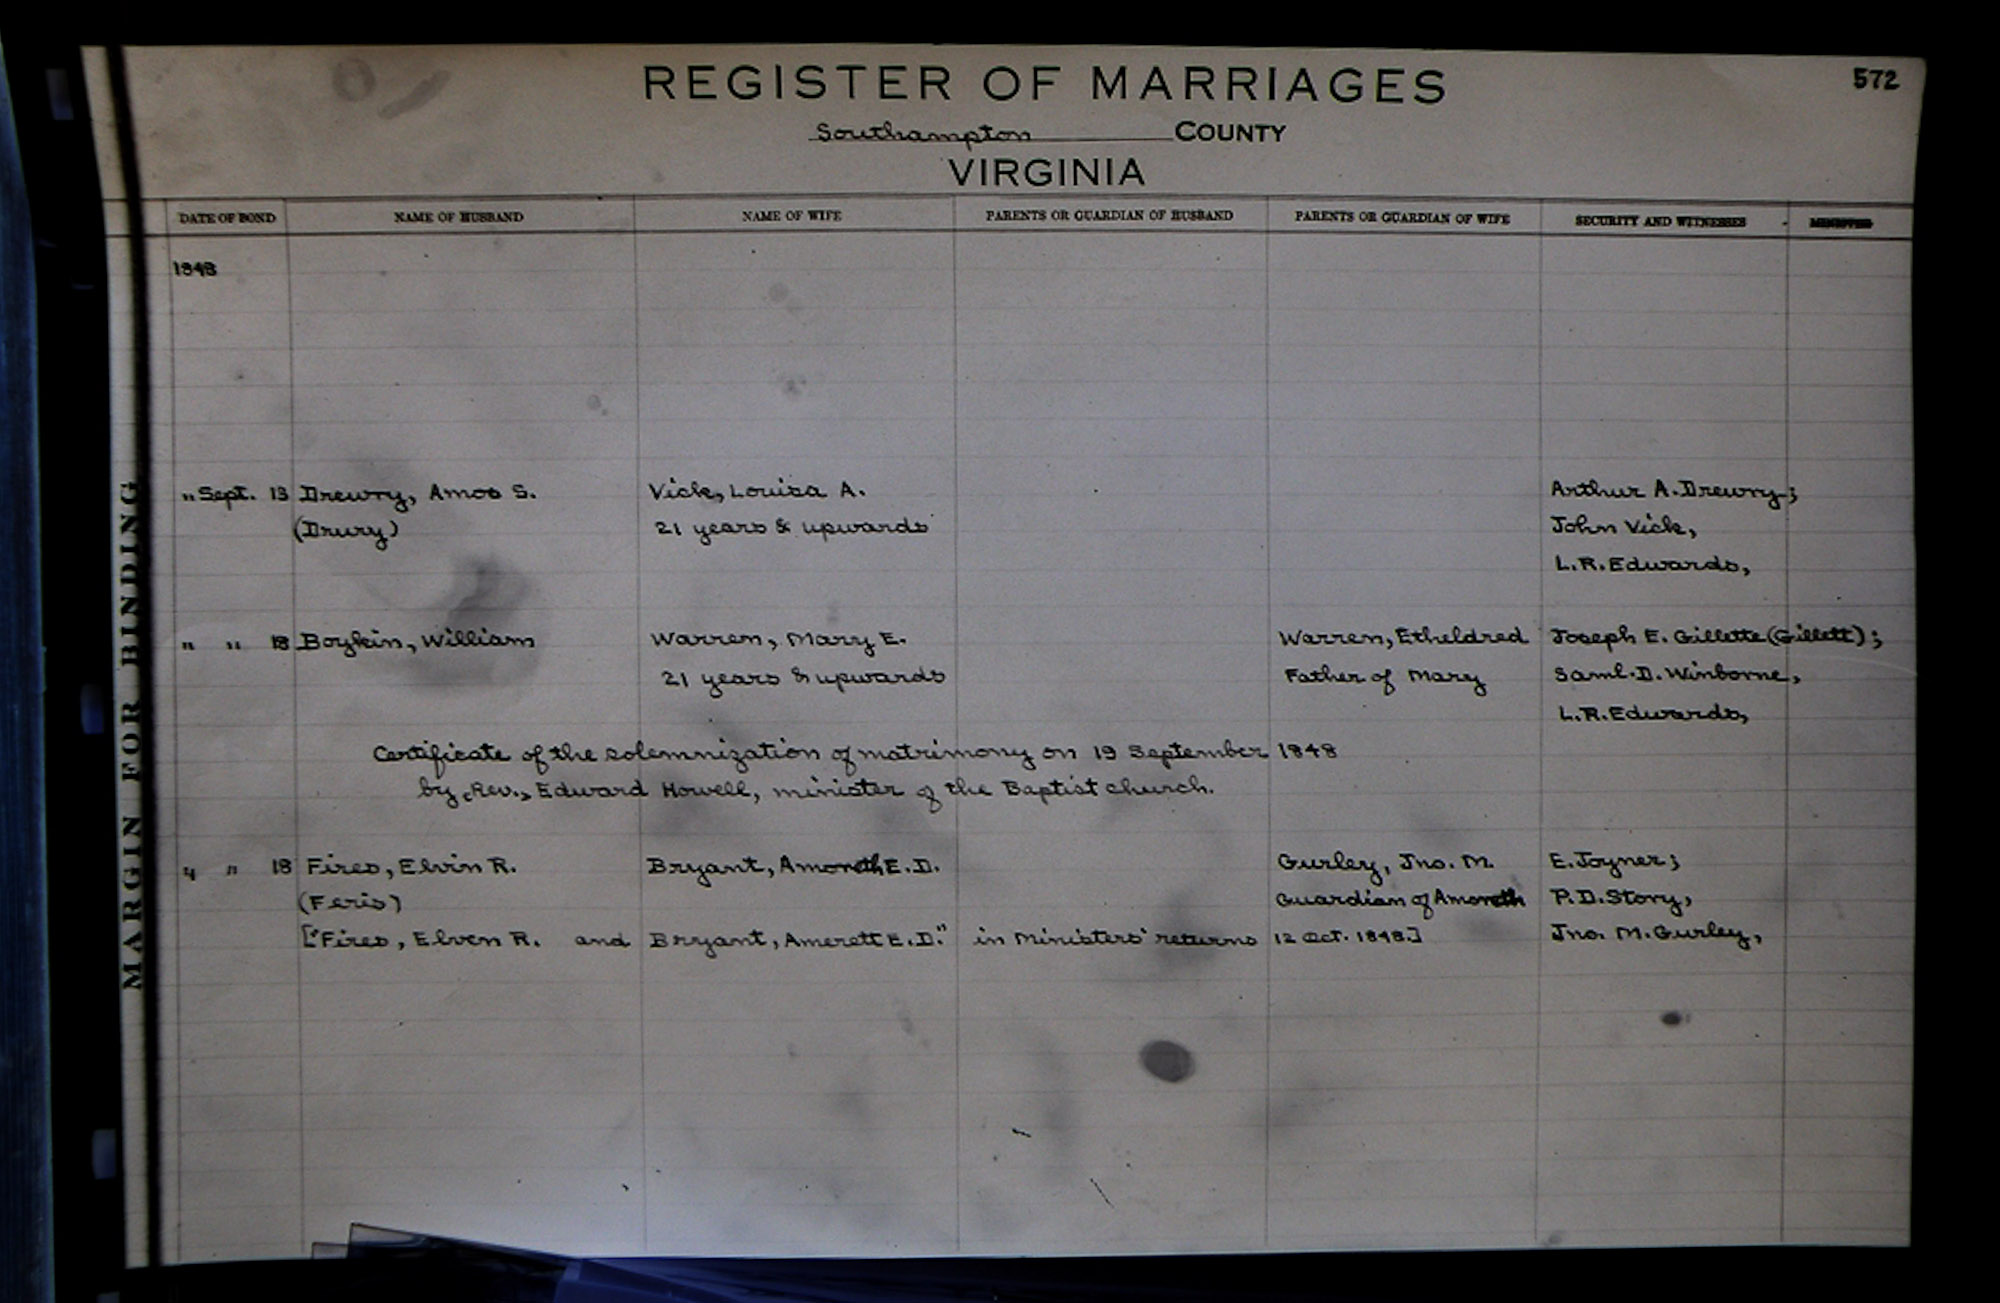 572
REGISTER OF MARRIAGES
Southampton COUNTY
VIRGINIA
MARGIN FOR BINDING
DATE OF BOND NAME OF HUSBAND NAME OF WIFE PARENTS OR GUARDIAN OF HUSBAND PARENTS OR GUARDIAN OF WIFE SECURITY AND WITNESSES
1848
" Sept. 13 Drewry, Amos S. Vick, Louisa A. Arthur A. Drewry;
(Drury) 21 years & upwards John Vick,
L.R. Edwards,
" " 18 Boykin, William Warren, Mary E. Warren, Etheldred Joseph E. Gillette (Gillett);
21 years & upwards Father of Mary Saml. D. Winborne,
L.R. Edwards,
Certificate of the solemnization of matrimony on 19 September 1848
by Rev., Edward Howell, minister of the Baptist church.
" " 18 Fires, Elvin R. Bryant, E. D. Gurley, Jno. M. E. Joyner;
(Feris) Guardian of P. D. Story,
["Fires, Elven R. and Bryant, Amerett E. D." in Ministers' returns 12 Oct. 1848.] Jno. M. Gurley,